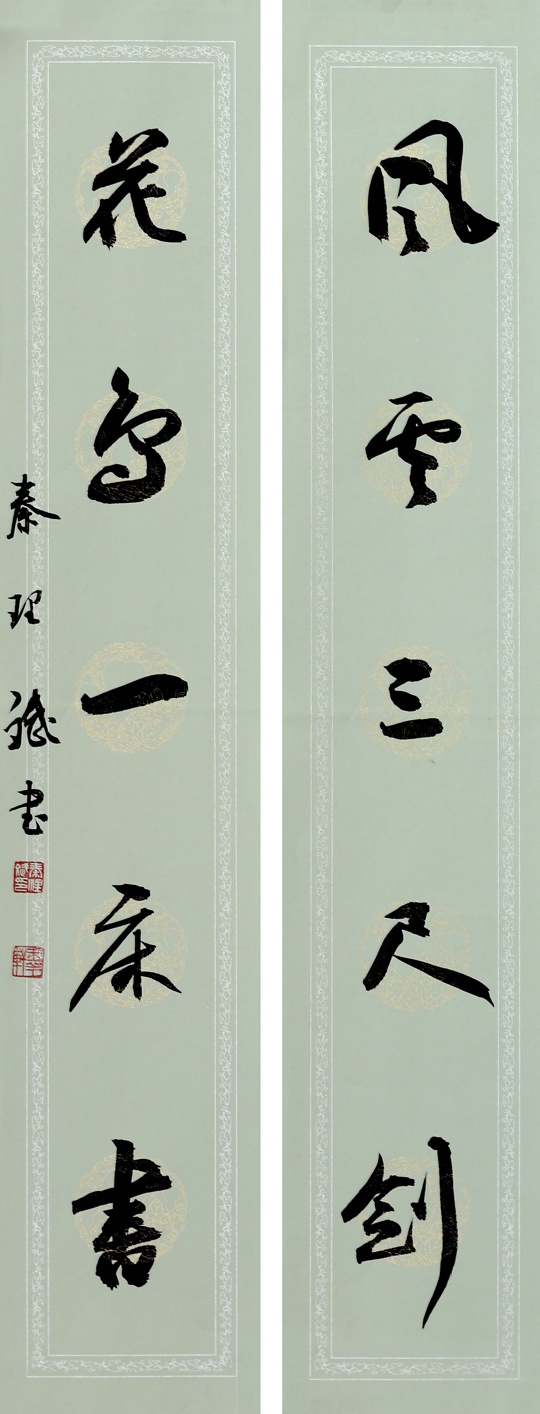 风云三尺剑
花鸟一床書
秦理斌书